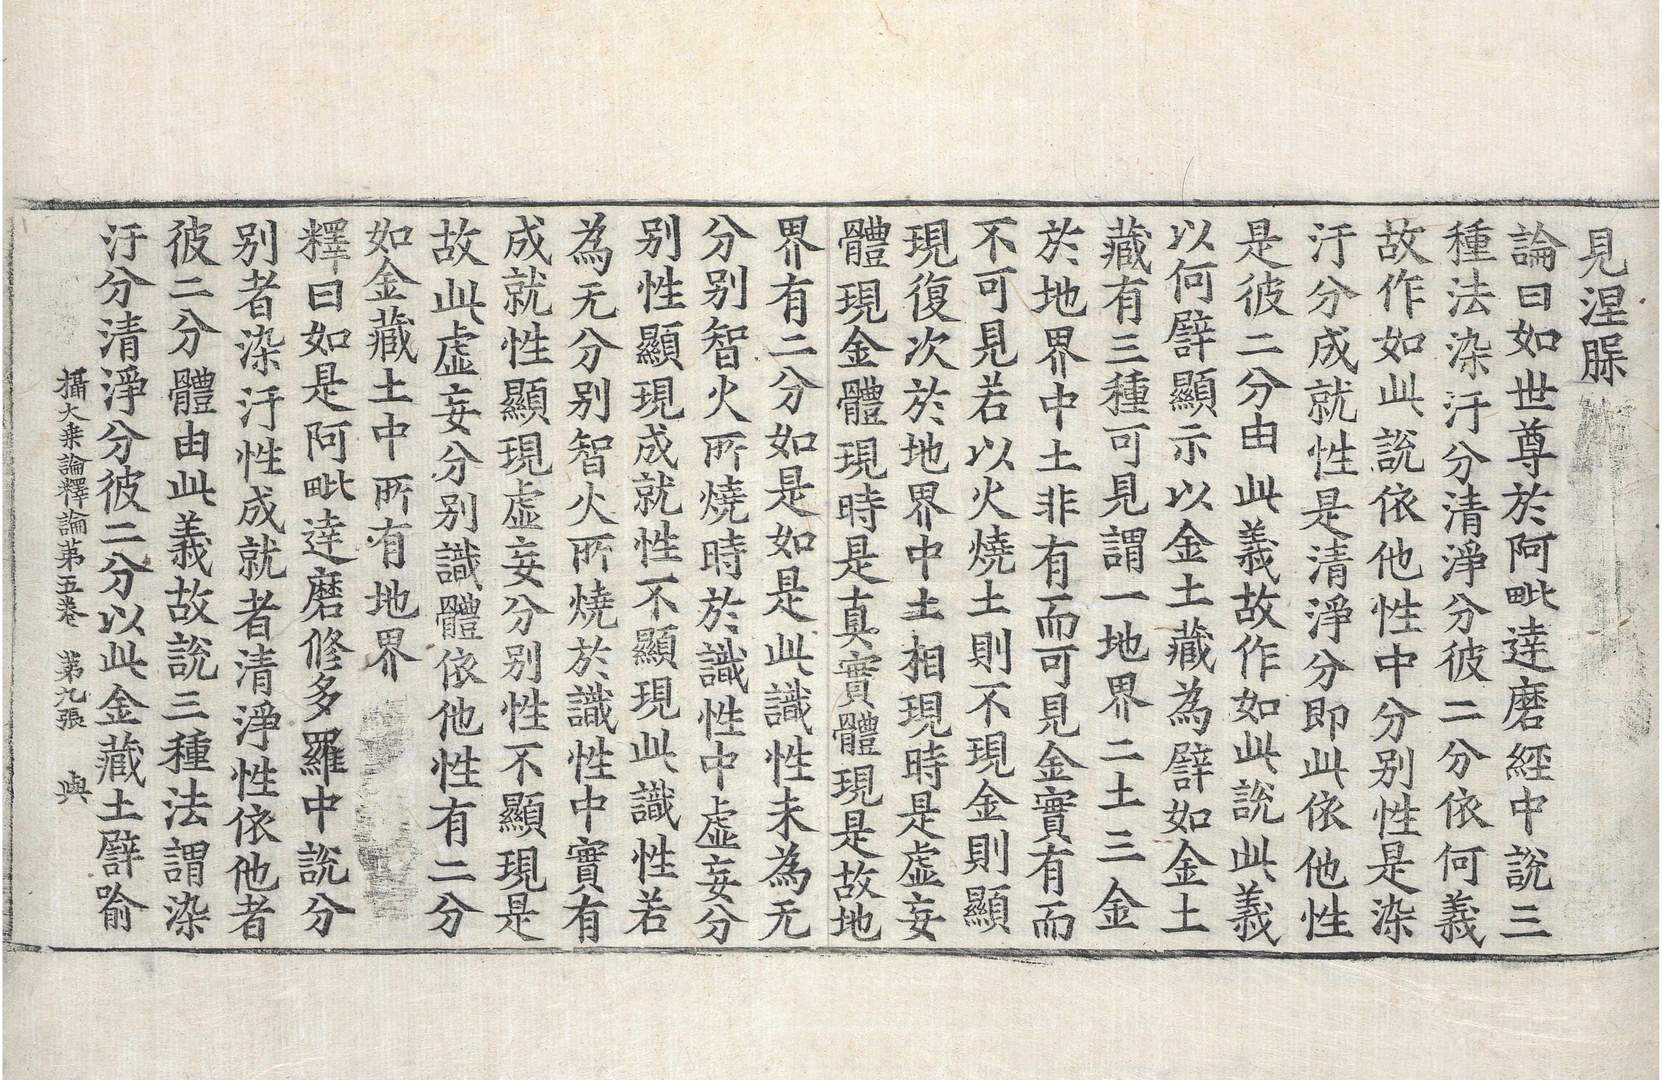 見涅槃
論曰如世尊於阿毗達磨經中說三
種法染汙分清淨分彼二分依何義
故作如此說依他性中分別性是染
汙分成就性是清淨分即此依他性
是彼二分由此義故作如此說此義
以何譬顯示以金土藏為譬如金土
藏有三種可見謂一地界二土三金
於地界中土非有而可見金實有而
不可見若以火燒土則不現金則顯
現復次於地界中土相現時是虛妄
體現金體現時是真實體現是故地
界有二分如是如是此識性未為无
分別智火所燒時於識性中虛妄分
別性顯現成就性不顯現此識性若
為无分別智火所燒於識性中實有
成就性顯現虛妄分別性不顯現是
故此虛妄分別識體依他性有二分
如金藏土中所有地界
釋曰如是阿毗達磨修多羅中說分
別者染汙性成就者清淨性依他者
彼二分體由此義故說三種法謂染
汙分清淨分彼二分以此金藏土譬喻
攝大乘論釋論第五卷 第九張 與